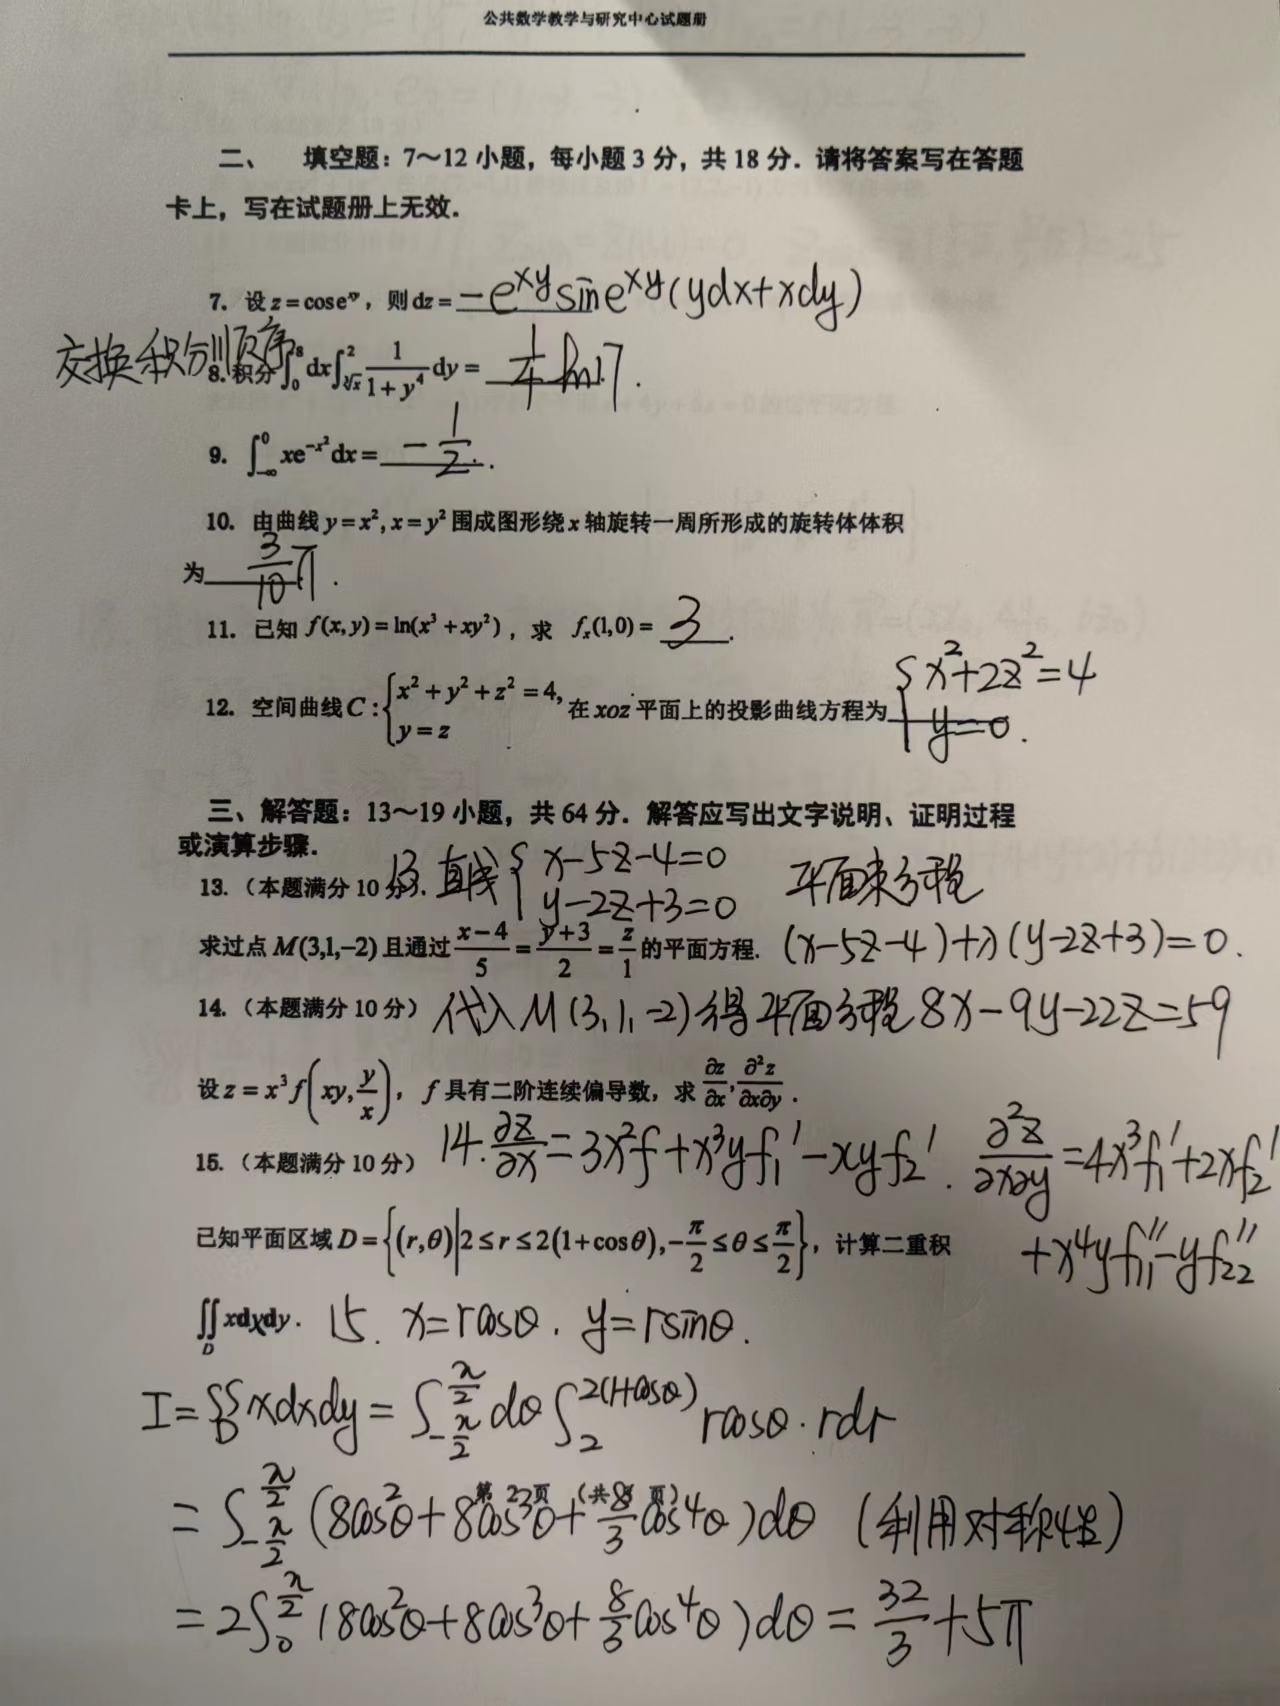 公共数学教学与研究中心试题册
二、 填空题：7～12 小题，每小题 3 分，共 18 分．请将答案写在答题
卡上，写在试题册上无效．
7. 设 z = cos e^{xy}，则 dz = -e^{xy} sin e^{xy} (ydx+xdy)
交换积分顺序
8. 积分 ∫_0^8 dx ∫_{∛x}^2 1/(1+y^4) dy = 1/4 ln17.
9. ∫_{-∞}^0 xe^{-x^2} dx = -1/2.
10. 由曲线 y = x^2, x = y^2 围成图形绕 x 轴旋转一周所形成的旋转体体积
为 3/10 π.
11. 已知 f(x,y) = ln(x^3 + xy^2)，求 f_x(1,0) = 3.
12. 空间曲线 C : { x^2 + y^2 + z^2 = 4, y = z 在 xoz 平面上的投影曲线方程为 { x^2+2z^2=4 y=0.
三、解答题：13～19 小题，共 64 分．解答应写出文字说明、证明过程
或演算步骤．
13.（本题满分 10 分） 13. 直线 { x-5z-4=0 y-2z+3=0 平面束方程
求过点 M(3,1,-2) 且通过 (x-4)/5 = (y+3)/2 = z/1 的平面方程. (x-5z-4)+λ(y-2z+3)=0.
14.（本题满分 10 分） 代入M(3,1,-2)得平面方程 8x-9y-22z=59
设 z = x^3 f(xy, y/x)，f 具有二阶连续偏导数，求 ∂z/∂x, ∂²z/∂x∂y .
15.（本题满分 10 分） 14. ∂z/∂x = 3x²f + x³yf₁′ - xyf₂′. ∂²z/∂x∂y = 4x³f₁′ + 2xf₂′
+ x⁴yf₁₁″ - yf₂₂″
已知平面区域 D = {(r,θ)|2 ≤ r ≤ 2(1+cosθ), -π/2 ≤ θ ≤ π/2}，计算二重积
∬_D xdxdy. 15. x=rcosθ. y=rsinθ.
I = ∬_D xdxdy = ∫_{-π/2}^{π/2} dθ ∫_2^{2(1+cosθ)} rcosθ·rdr
第 2 页 （共 3 页）
= ∫_{-π/2}^{π/2} (8cos²θ+8cos³θ+8/3 cos⁴θ)dθ (利用对称性)
= 2∫_0^{π/2} (8cos²θ+8cos³θ+8/3 cos⁴θ)dθ = 32/3 + 5π